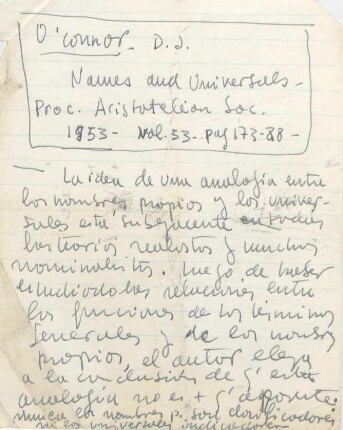 O'Connor. D. J.
Names and Universals -
Proc. Aristotelian Soc.
1953 - Vol. 53 - pag 173-88 -
— La idea de una analogía entre
los nombres propios y los univer-
sales está subyacente en todas
las teorías realistas y muchas
nominalistas. Luego de haber
estudiado las relaciones entre
las funciones de los términos
generales y de los nombres
propios, el autor llega
a la conclusión de q' esta
analogía no es + q' aparente.
nunca los nombres p. son clasificadores
ni los universales indicadores